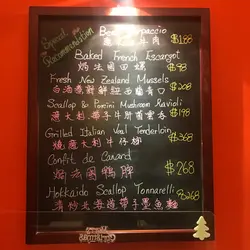 Special Recommendation
Beef Carpaccio $188
生牛肉
Baked French Escargot
焗法國田螺 $98
Fresh New Zealand Mussels
白酒煮新鮮紐西蘭青口 $198
Scallop & Porcini Mushroom Ravioli
意大利帶子牛肝菌雲吞 $198
Grilled Italian Veal Tenderloin
燒意大利牛仔柳 $368
Confit de Canard
油浸法國鴨脾 $268
Hokkaido Scallop Tonnarelli
香炒北海道帶子墨魚麵 $268